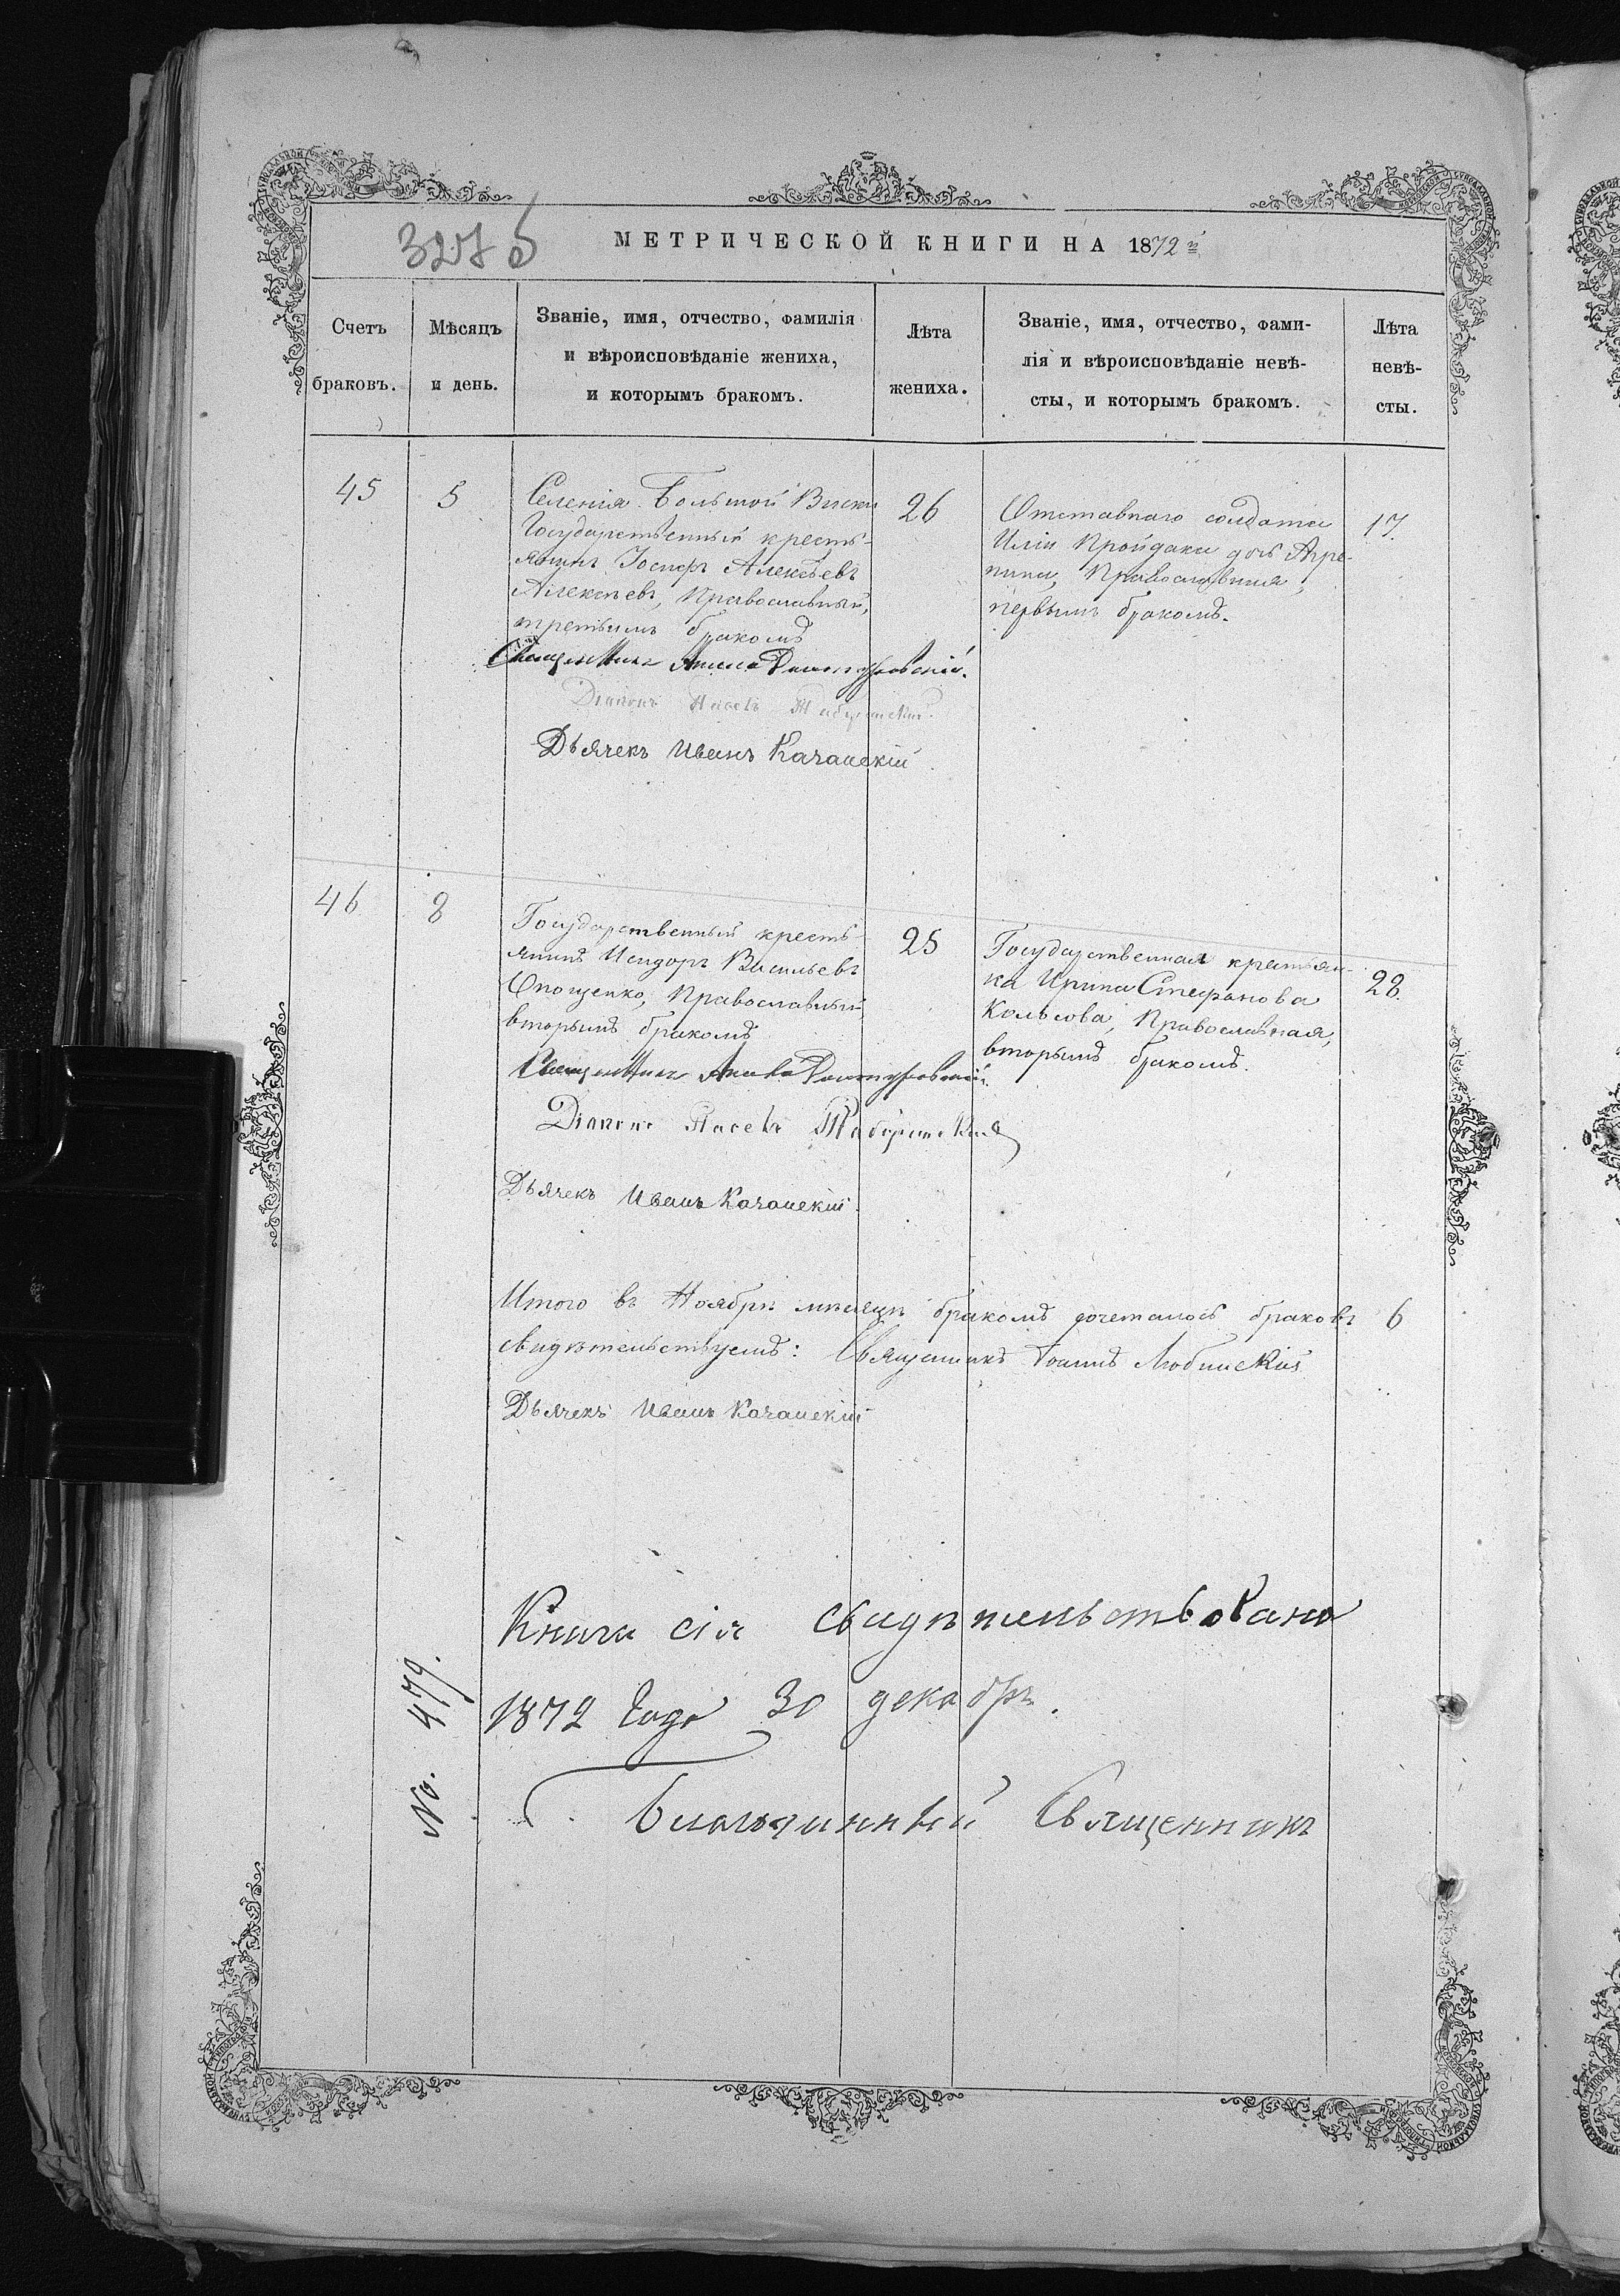 327 б
МЕТРИЧЕСКОЙ КНИГИ НА 1872 й
Счетъ браковъ.
Мѣсяцъ и день.
Званіе, имя, отчество, фамилія
и вѣроисповѣданіе жениха,
и которымъ бракомъ.
Лѣта жениха.
Званіе, имя, отчество, фами-
лія и вѣроисповѣданіе невѣ-
сты, и которымъ бракомъ.
Лѣта
невѣ-
сты.
45
5
Селенія Большой Виски
Государственный кресть-
янинъ Іосифъ Алексѣевъ
Алексѣевъ, Православный,
третьимъ бракомъ
26
Отставнаго солдата
Иліи Пройдака дочь Агре-
пина, Православная,
первымъ бракомъ.
17.
Священникъ
Діаконъ
Дьячекъ Иванъ Качанскій
46
8
Государственный кресть-
янинъ Исидоръ Васильевъ
Онощенко, Православный,
вторымъ бракомъ
25
Государственная крестьян-
ка Ирина Стефанова
Кольсова, Православная,
вторымъ бракомъ.
28.
Священникъ
Діаконъ
Дьячекъ Иванъ Качанскій
Итого въ Ноябрѣ мѣсяцѣ бракомъ сочеталось браковъ 6
свидѣтельствуемъ: Священникъ Іоаннъ Любинскій
Дьячекъ Иванъ Качанскій
Книга сія свидѣтельствована
1872 Года 30 декабря.
No. 479.
Благочинный Священникъ